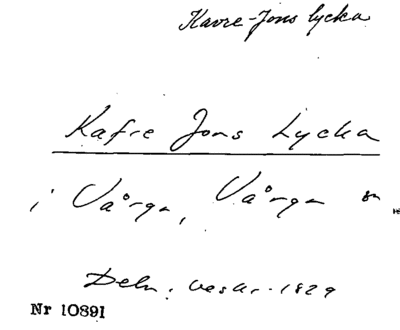 Kavre-Jons lycka
Kafre Jons Lycka
i Vårga, Vårga sn
Deln: 1829
Nr 10891